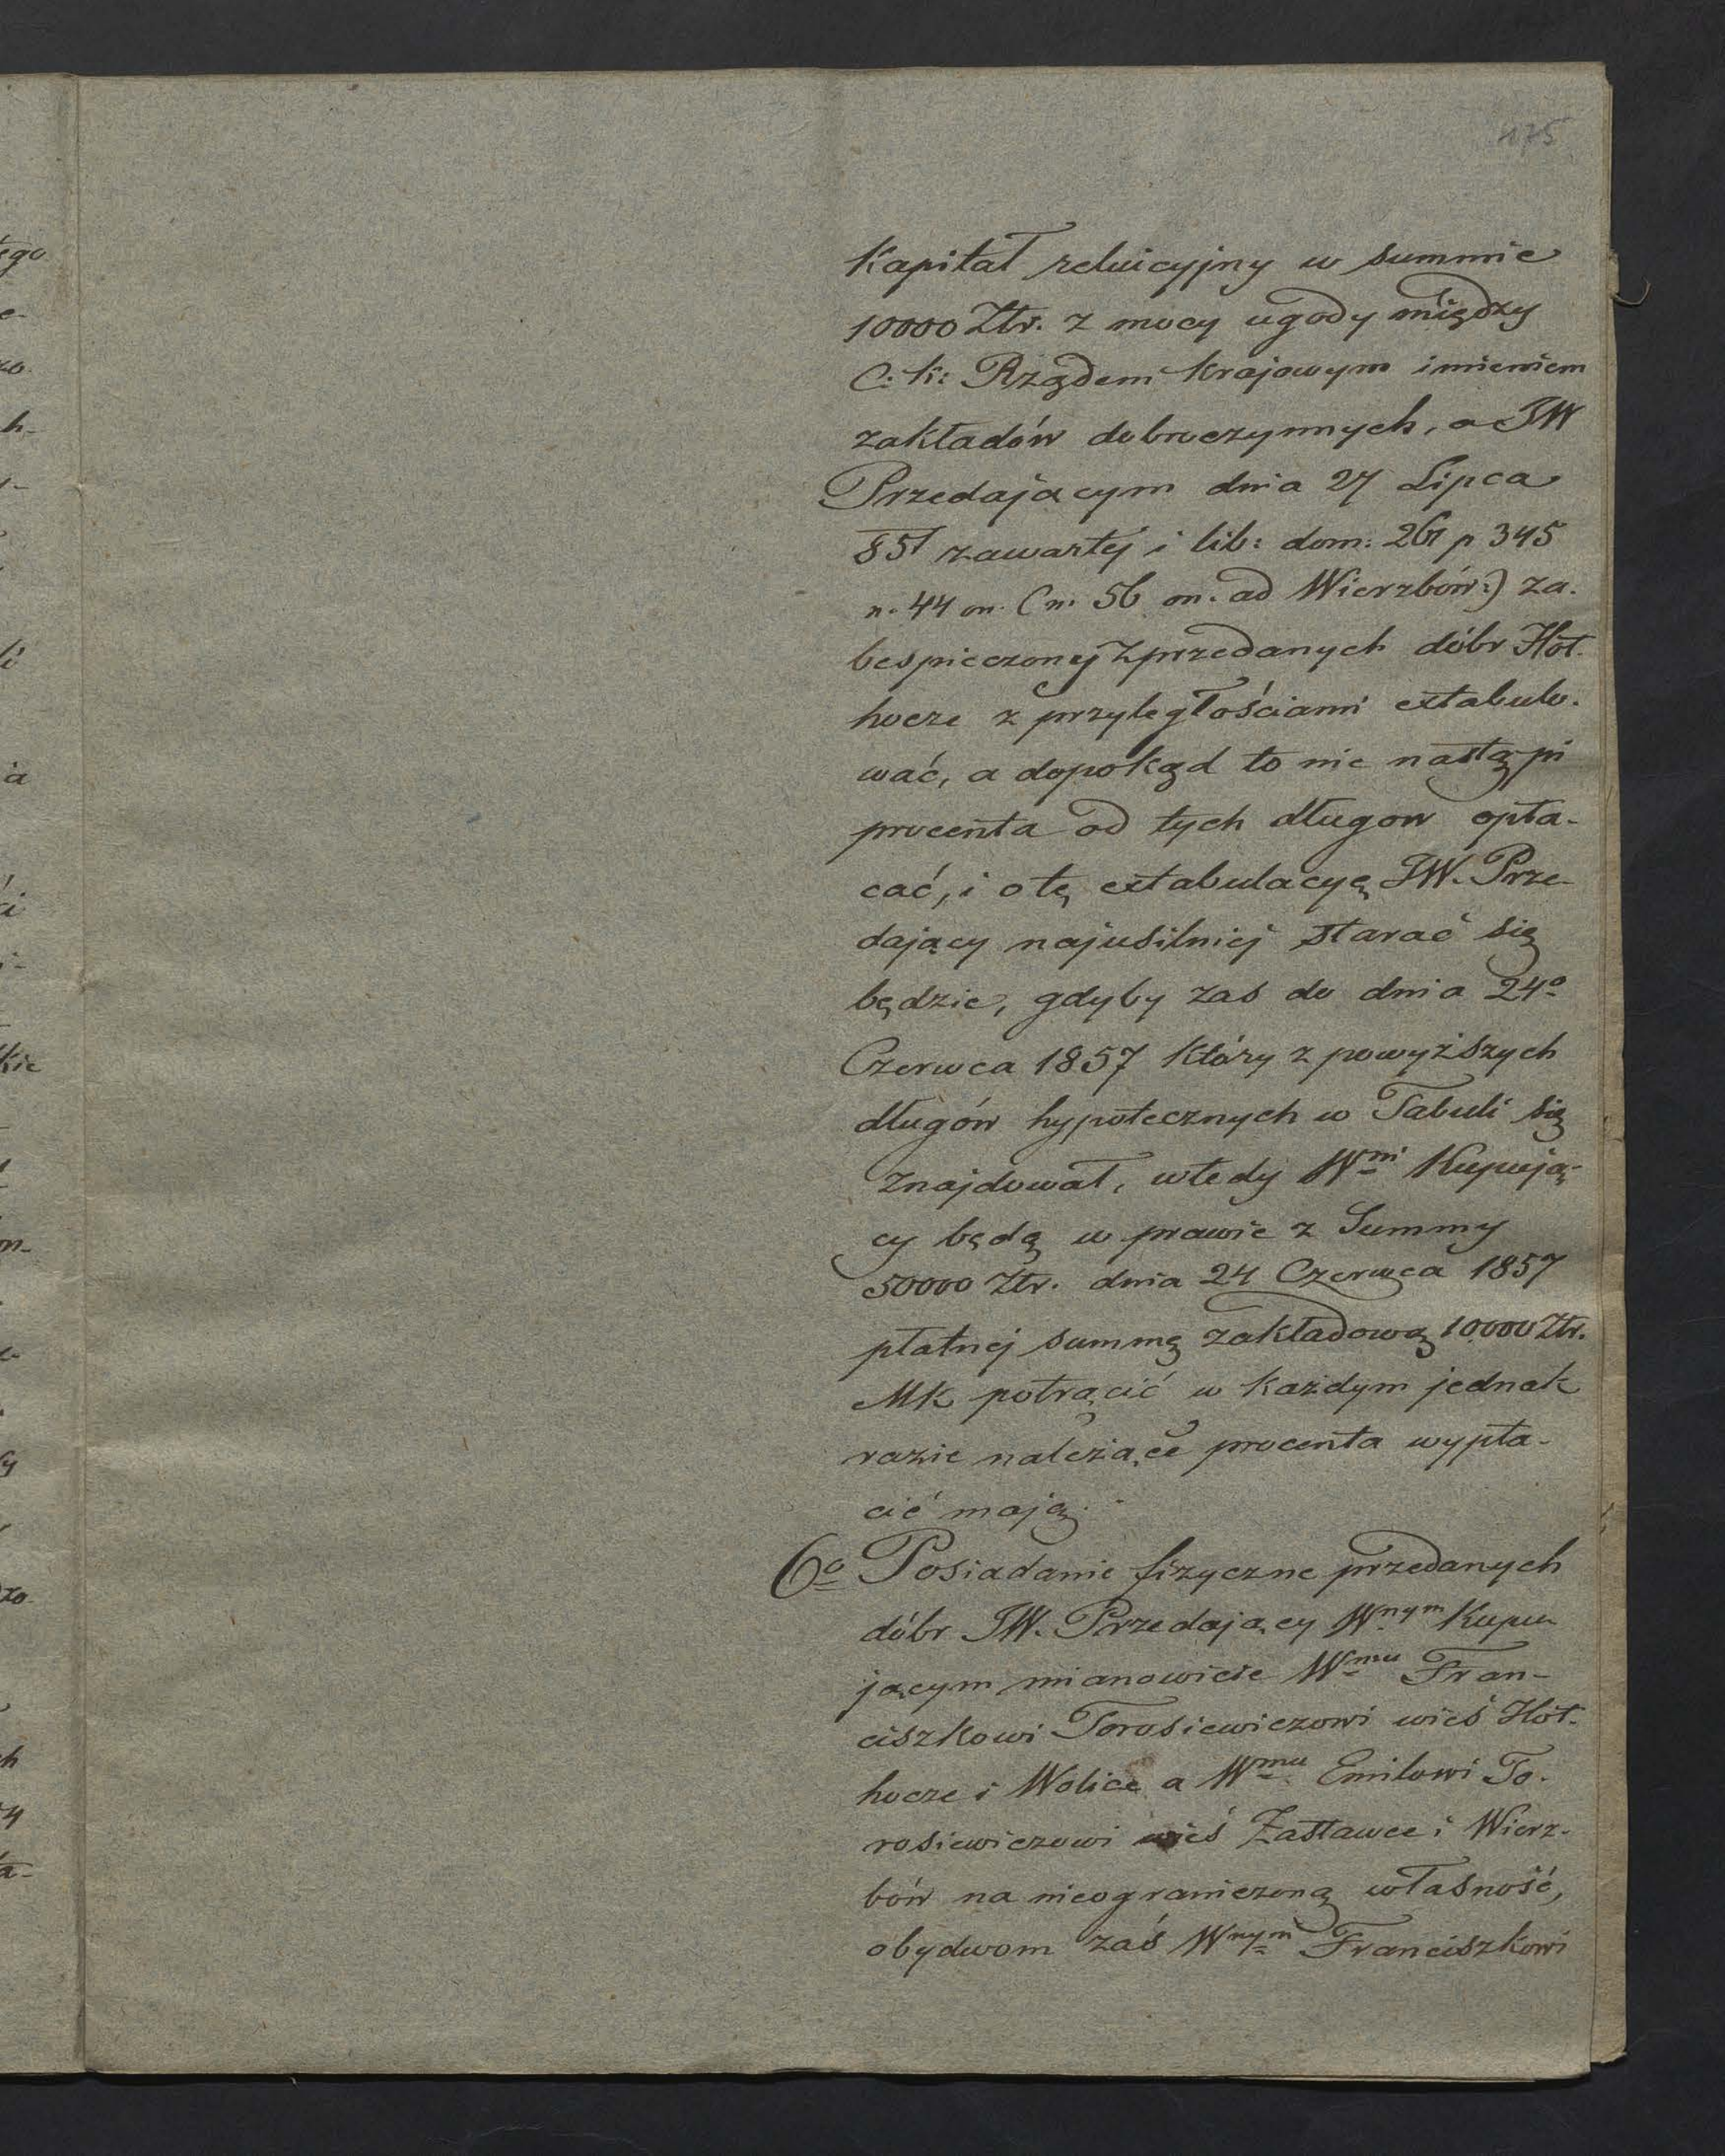 175
Kapitał reluicyjny w summie
10000 Ztr. z mocy ugody między
C: k: Rządem krajowym imieniem
zakładów dobroczynnych, a JW
Przedającym dnia 27 Lipca
851 zawartej i lib: dom: 261 p 345
n. 44 on. (n. 56 on. ad Wierzbów:) za-
bespieczonej z przedanych dóbr Hoł-
hocze z przyległościami extabulo-
wać, a dopokąd to nie nastąpi
procenta od tych długow opła-
cać, i o tę extabulacyę JW. Prze-
dający najusilniej starać się
będzie, gdyby zas do dnia 24º
Czerwca 1857 który z powyższych
długów hypotecznych w Tabuli się
znajdował, wtedy Wni Kupują-
cy będą w prawie z Summy
50000 Ztr. dnia 24 Czerwca 1857
płatnej summę zakładową 10000 Ztr.
MK potrącić w każdym jednak
razie należące procenta wypła-
cić mają.
6º Posiadanie fizyczne przedanych
dóbr JW. Przedający Wnym Kupu
jącym mianowicie Wmu Fran-
ciszkowi Torosiewiczowi wieś Hoł-
hocze i Wolice a Wmu Emilowi To-
rosiewiczowi wieś Zastawce i Wierz-
bów na nieograniczoną własność,
obydwom zaś Wnym Franciszkowi